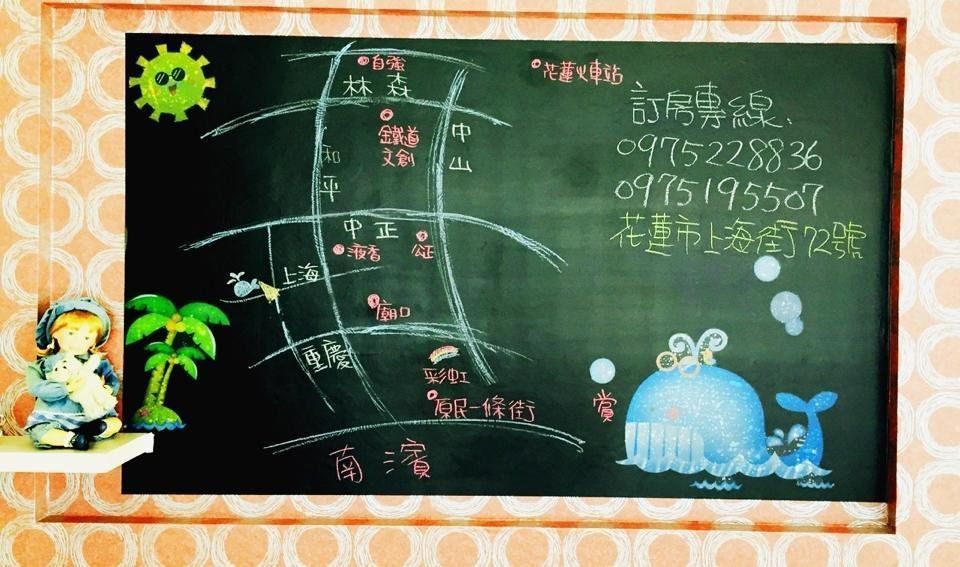 自強
林森
花蓮火車站
訂房專線、
0975228836
0975195507
花蓮市上海街72號
鐵道
文創
中山
和平
中正
液香
公正
上海
廟口
重慶
彩虹
原民一條街
賞
南濱